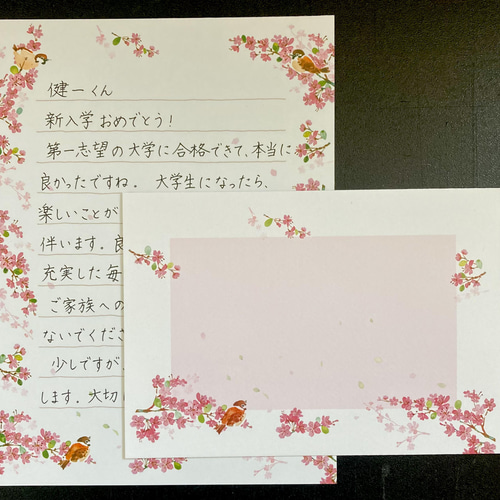 健一くん
新入学おめでとう！
第一志望の大学に合格できて、本当に
良かったですね。 大学生になったら、
楽しいことが
伴います。良
充実した毎
ご家族への
ないでくださ
少しですが
します。大切